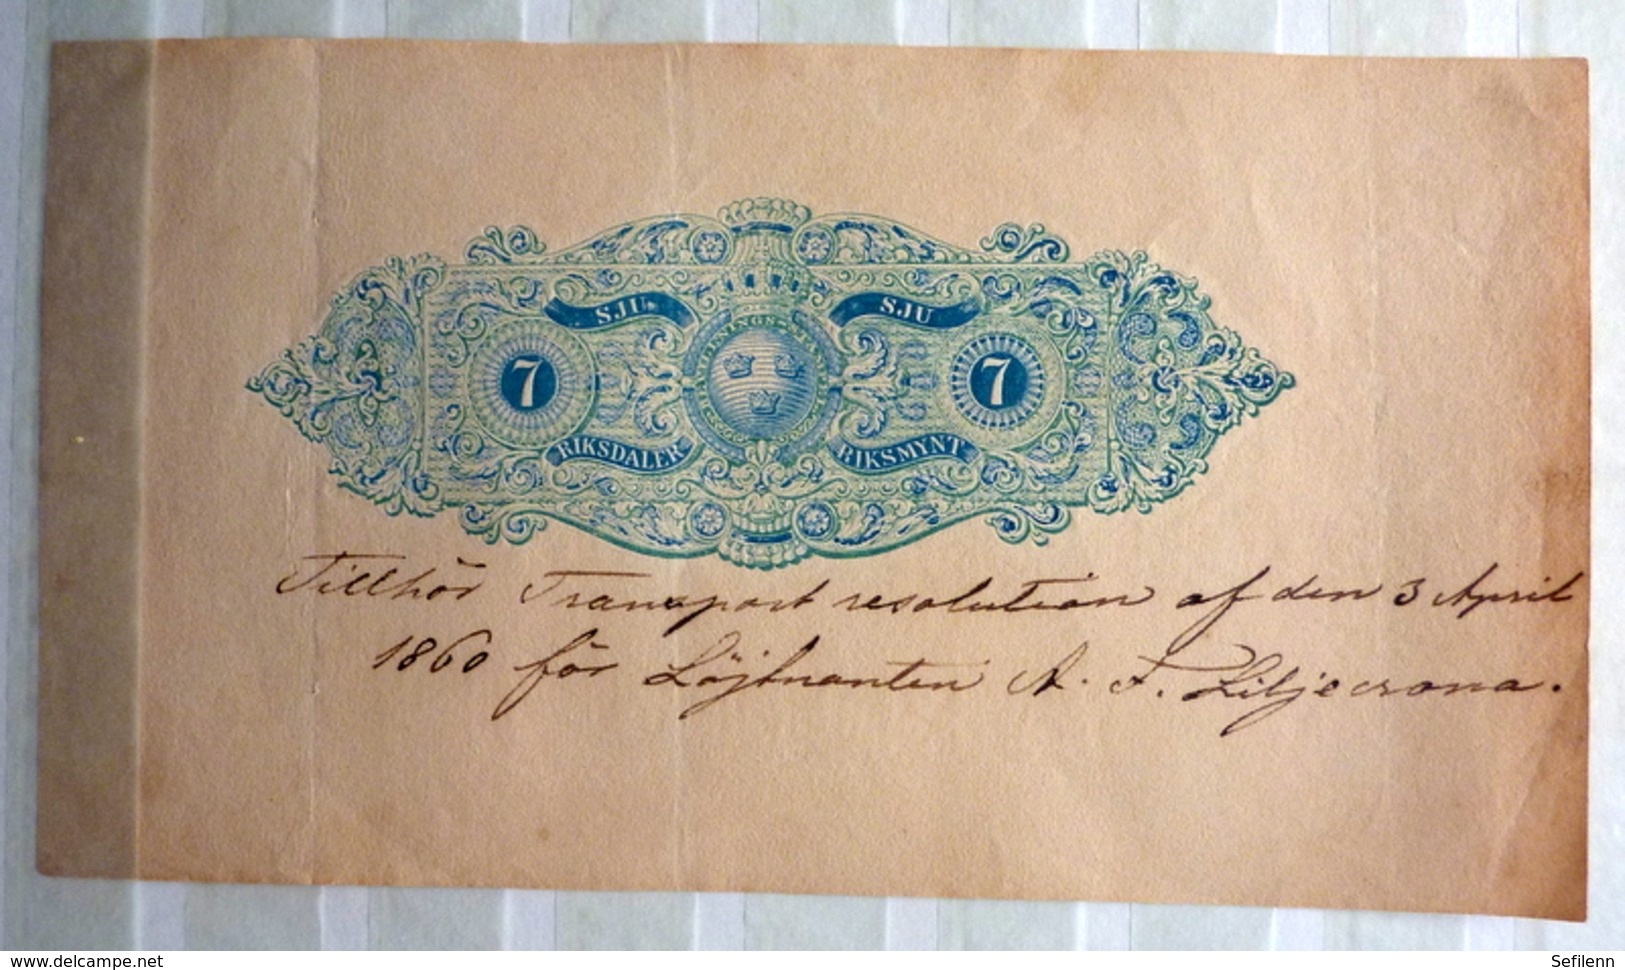 SJU SJU
7 7
RIKSDALER RIKSMYNT
Tillhör Transport resolution af den 3 April
1860 för Löjtnanten A. F. Liljecrona.
www.delcampe.net
Sefilenn